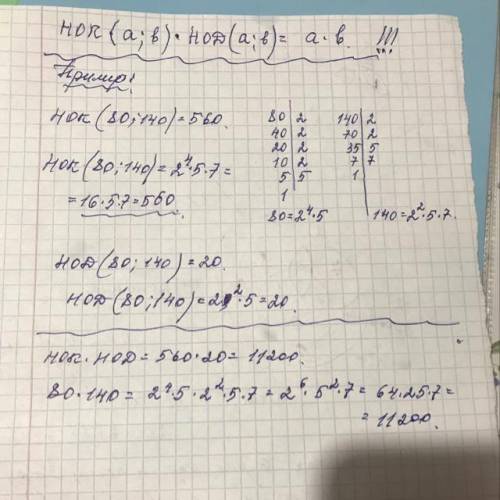 НОК(а; в) · НОД(а; в) = а · в. !!!
Пример:
НОК(80; 140) = 560.
НОК(80; 140) = 2⁴·5·7 =
= 16·5·7 = 560
80 | 2
40 | 2
20 | 2
10 | 2
5 | 5
1
80 = 2⁴·5
140 | 2
70 | 2
35 | 5
7 | 7
1
140 = 2²·5·7.
НОД(80; 140) = 20.
НОД(80; 140) = 2²·5 = 20.
НОК · НОД = 560·20 = 11200.
80·140 = 2⁴·5·2²·5·7 = 2⁶·5²·7 = 64·25·7 =
= 11200.